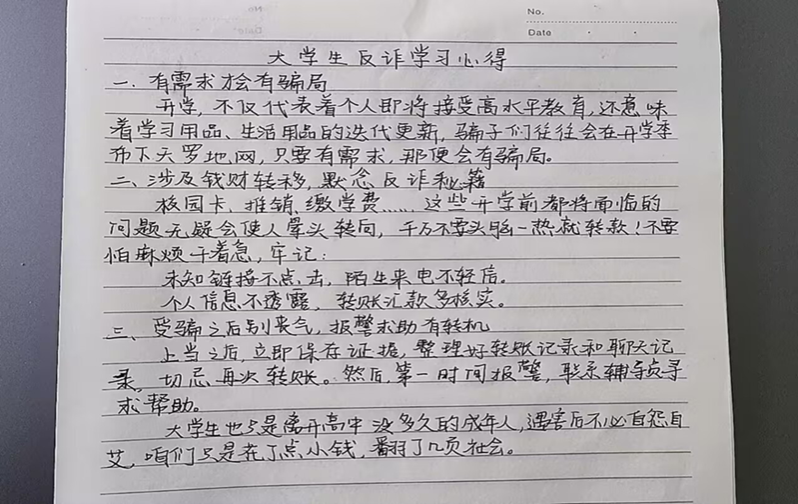 No.
Date
大学生反诈学习心得
一、有需求才会有骗局
开学，不仅代表着个人即将接受高水平教育，还意味
着学习用品、生活用品的迭代更新，骗子们往往会在开学季
布下天罗地网，只要有需求，那便会有骗局。
二、涉及钱财转移，默念反诈秘籍
校园卡、推销、缴学费……这些开学前都将面临的
问题无疑会使人晕头转向，千万不要头脑一热就转款！不要
怕麻烦干着急，牢记：
未知链接不点击，陌生来电不轻信。
个人信息不透露，转账汇款多核实。
三、受骗之后别丧气，报警求助有转机
上当之后，立即保存证据，整理好转账记录和聊天记
录，切忌再次转账。然后，第一时间报警，联系辅导员寻
求帮助。
大学生也只是离开高中没多久的成年人，遇害后不必自怨自
艾，咱们只是花了点小钱，翻了几页社会。